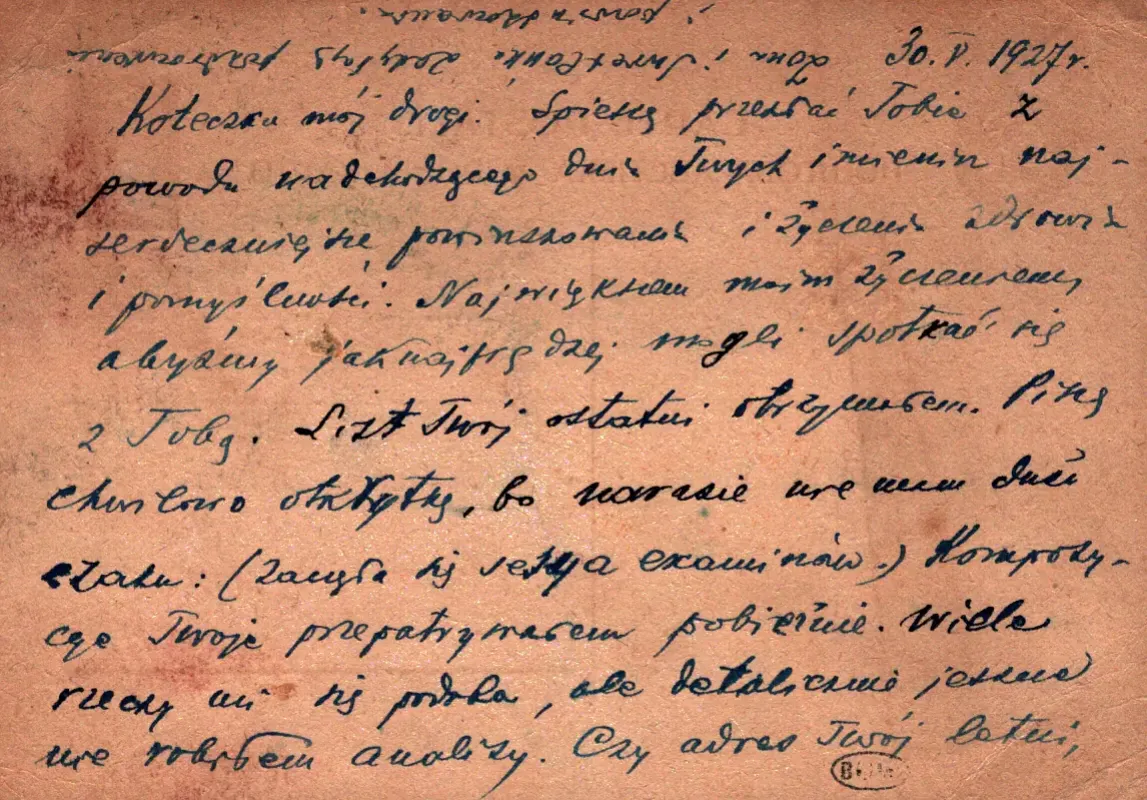 30. V. 1927 r.
Koteczku mój drogi. Spieszę przesłać Tobie z
powodu nadchodzącego dnia Twych imienin naj-
serdeczniejsze powinszowania i życzenia zdrowia
i pomyślności. Największem moim życzeniem,
abyśmy jaknajprędzej mogli spotkać się
z Tobą. List Twój ostatni otrzymałem. Piszę
chwilowo otkrytkę, bo narazie nie mam dużo
czasu: (zaczęła się sesya examinów.) Kompozy-
cye Twoje przepatrywałem pobieżnie. Wiele
rzeczy mi się podoba, ale detalicznie jeszcze
nie robiłem analizy. Czy adres Twój letni,
Żona i załączają pozdrowienia
i powinszowania.